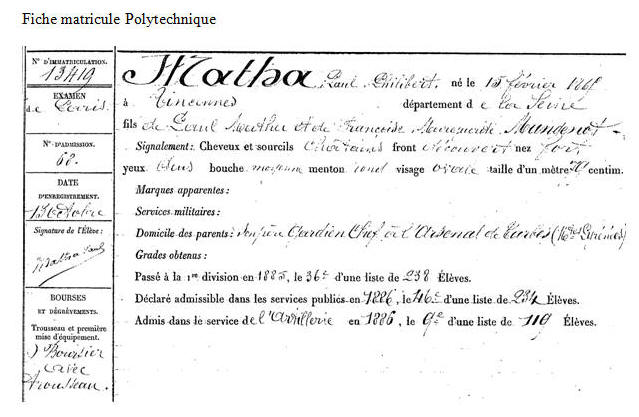 Fiche matricule Polytechnique
N° D'IMMATRICULATION.
13419
EXAMEN
de Paris
N° D'ADMISSION.
68.
DATE
D'ENREGISTREMENT.
13 Octobre
Signature de l'Élève:
Matha Paul
BOURSES
ET DÉGRÈVEMENTS.
Trousseau et première
mise d'équipement.
Boursier
avec
trousseau.
Matha Paul Philibert. né le 15 février
à Vincennes département de la Seine
fils de Paul Matha et de Françoise Marguerite Mangenot
Signalement: Cheveux et sourcils Châtains front découvert nez fort
yeux bleus bouche moyenne menton rond visage ovale taille d'un mètre 70 centim.
Marques apparentes:
Services militaires:
Domicile des parents: Son père Gardien Chef à l'Arsenal de Tarbes (Htes Pyrénées)
Grades obtenus:
Passé à la 1re division en 1885, le 36e d'une liste de 238 Élèves.
Déclaré admissible dans les services publics en 1886, le 46e d'une liste de 234 Élèves.
Admis dans le service de l'Artillerie en 1886, le 9e d'une liste de 119 Élèves.